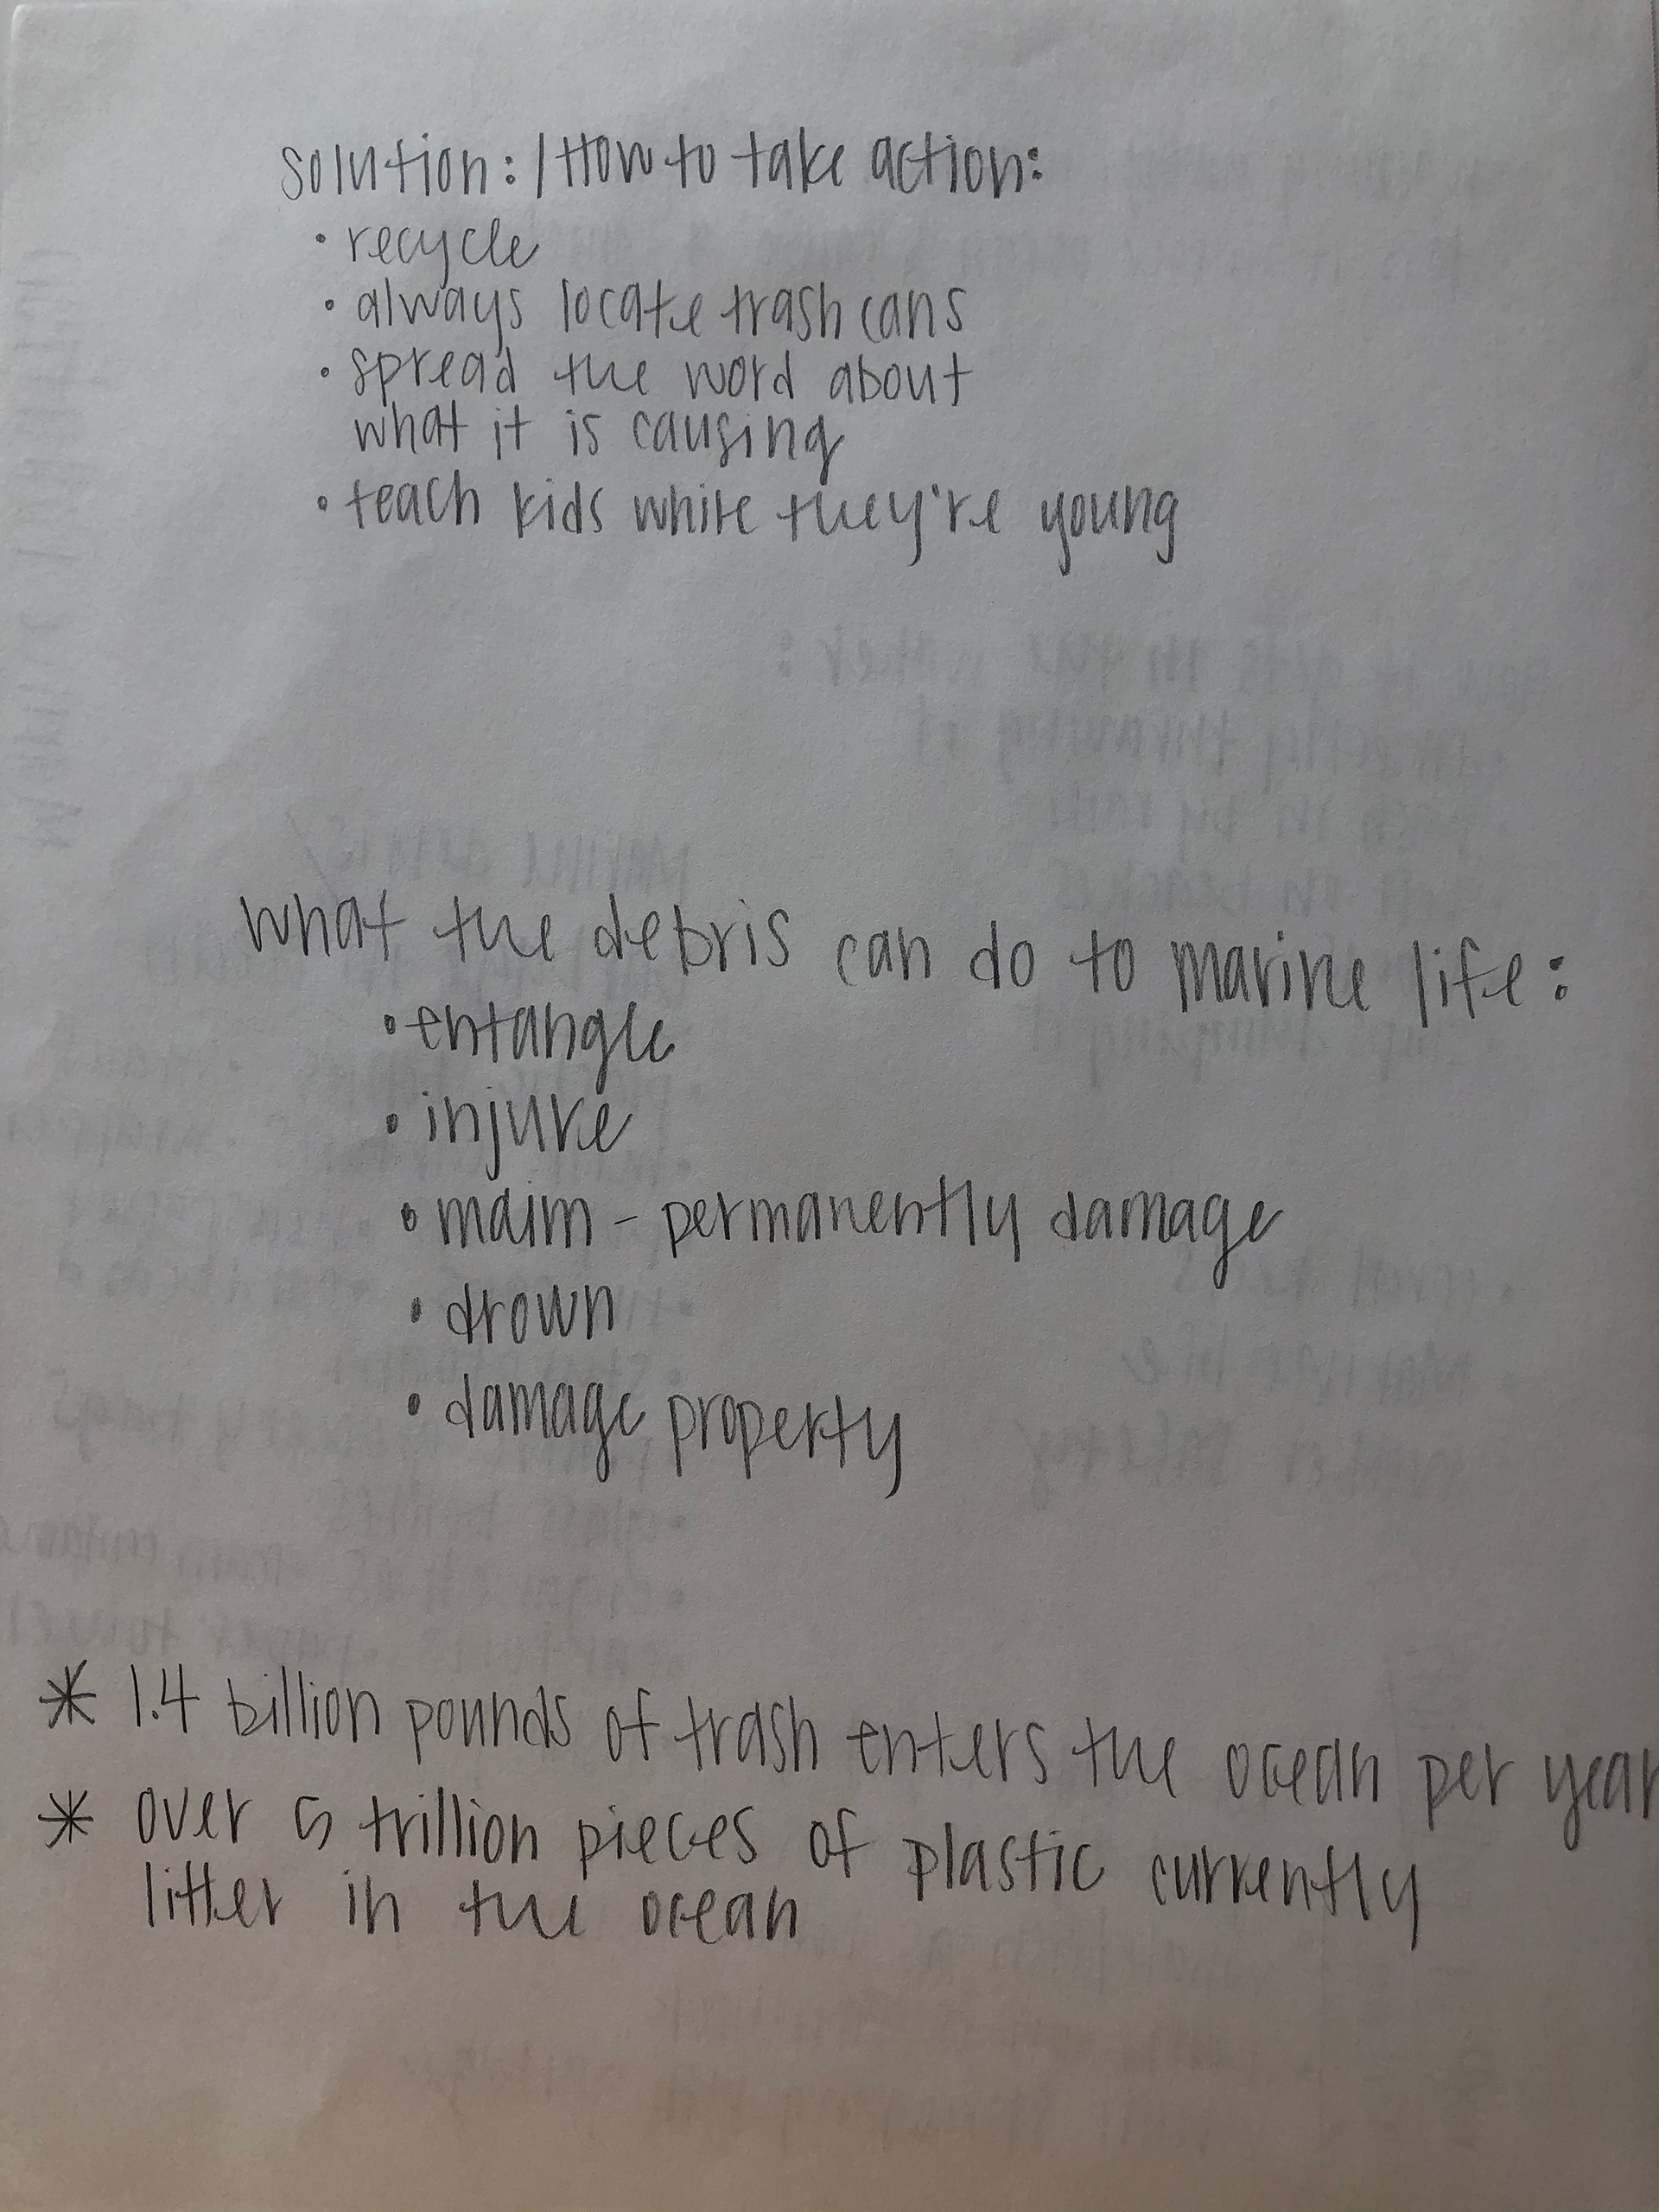 solution: / How to take action:
• recycle
• always locate trash cans
• spread the word about
what it is causing
• teach kids while they're young
what the debris can do to marine life:
• entangle
• injure
• maim - permanently damage
• drown
• damage property
* 1.4 billion pounds of trash enters the ocean per year
* over 5 trillion pieces of plastic currently
litter in the ocean